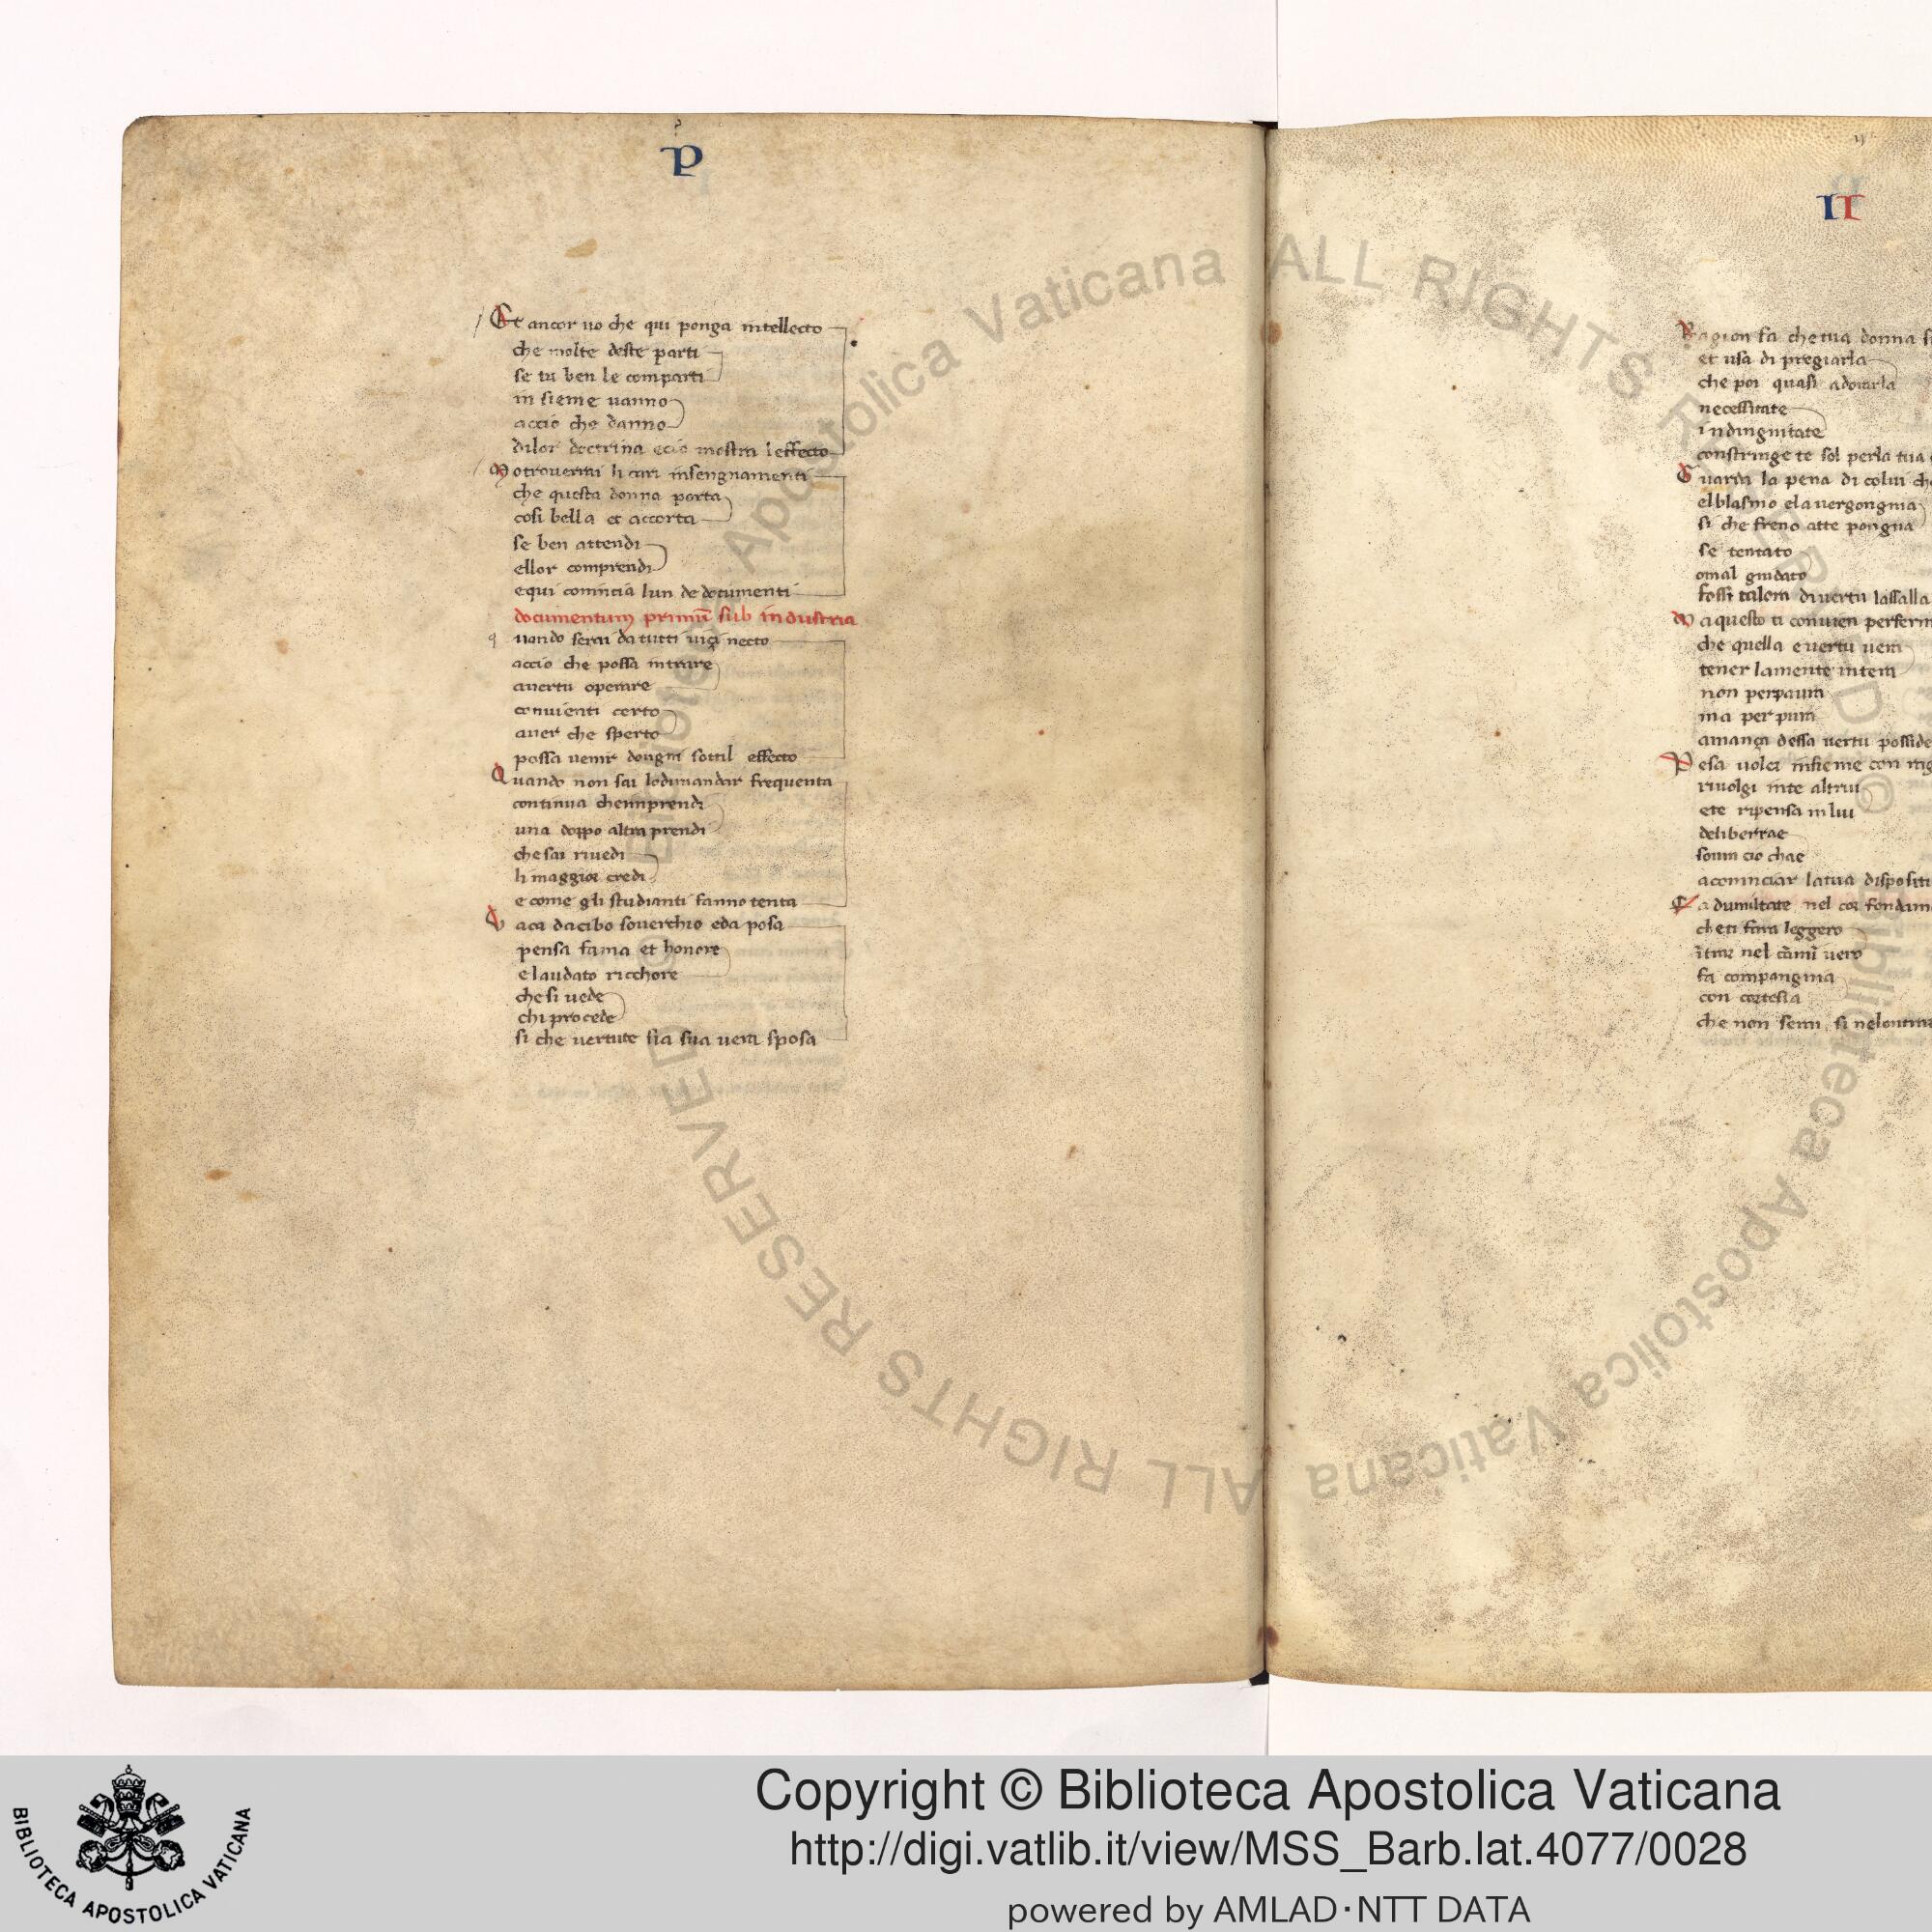 P
Et ancor uo che qui ponga intellecto
che molte deste parti
se tu ben le comparti
in sieme uanno
accio che danno
dilor doctrina ecio mostra leffecto
Mo trouerrai li cari insengnamenti
che questa donna porta
cosi bella et accorta
se ben attendi
ellor comprendi
equi comincia lun de documenti
documentum primū sub industria
q uando serai da tutti uiçi necto
accio che possa intrare
auertu operare
conuienti certo
auer che sperto
possa uenir dougni sottil effecto
Quando non sai lodimandar frequenta
continua chemprendi
una doppo altra prendi
che sai riuedi
li maggior credi
e come gli studianti fanno tenta
Vaca dacibo souerchio eda posa
pensa fama et honore
elaudato ricchore
che si uede
chi procede
si che uertute sia sua uera sposa
II
Ragion fa che tua donna
et usa di pregiarla
che poi quasi adorarla
necessitate
indingnitate
constringe te sol perla tua
Guarda la pena di colui
el blasmo ela uergongnia
si che freno atte pongna
se tentato
omal guidato
fossi talora di uertu lassalla
Ma questo ti conuien
che quella e uertu uera
tener lamente intera
non perpaura
ma per pura
amança dessa uertu
Pesa uoler insieme con
riuolgi inte altrui
ete ripensa in lui
deliberrae
soura cio chae
acominciar latua
Ca dumiltate nel cor
cheti fara leggero
itrar nel camī uero
fa compangnia
con cortesia
che non semi si
Copyright © Biblioteca Apostolica Vaticana
http://digi.vatlib.it/view/MSS_Barb.lat.4077/0028
powered by AMLAD·NTT DATA
BIBLIOTECA APOSTOLICA VATICANA
© Biblioteca Apostolica Vaticana ALL RIGHTS RESERVED
© Biblioteca Apostolica Vaticana ALL RIGHTS RESERVED